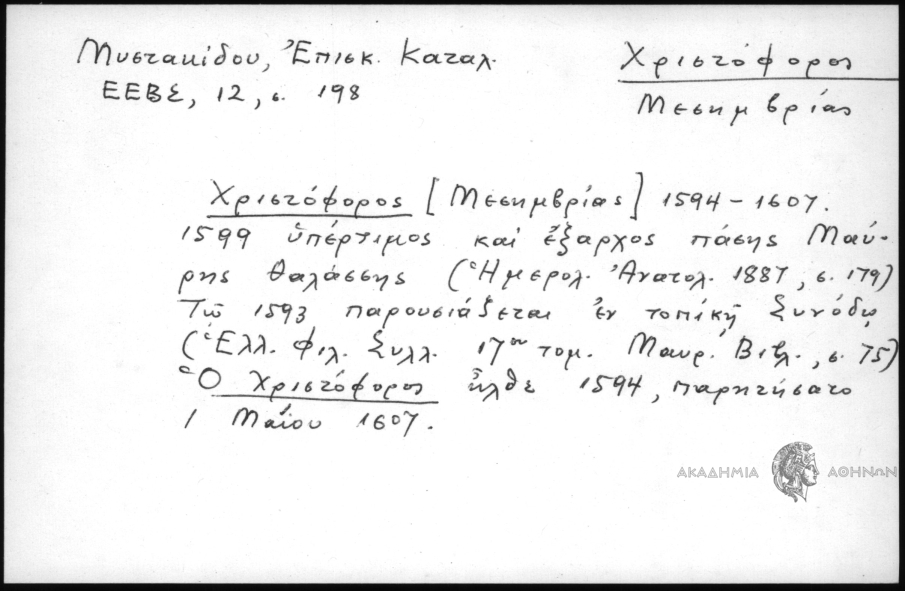 Μυστακίδου, Ἐπισκ. Καταλ.
ΕΕΒΣ, 12, σ. 198
Χριστόφορος
Μεσημβρίας
Χριστόφορος [Μεσημβρίας] 1594 - 1607.
1599 ὑπέρτιμος καὶ ἔξαρχος πάσης Μαύ-
ρης θαλάσσης (Ἡμερολ. Ἀνατολ. 1887, σ. 179)
Τῷ 1593 παρουσιάζεται ἐν τοπικῇ Συνόδῳ
(Ἑλλ. Φιλ. Συλλ. 17ου τομ. Μαυρ. Βιβλ., σ. 75)
Ὁ Χριστόφορος ἦλθε 1594, παρητήσατο
1 Μαΐου 1607.
ΑΚΑΔΗΜΙΑ ΑΘΗΝΩΝ